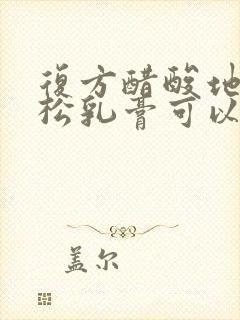 復方醋酸地
松乳膏可以
盖尔